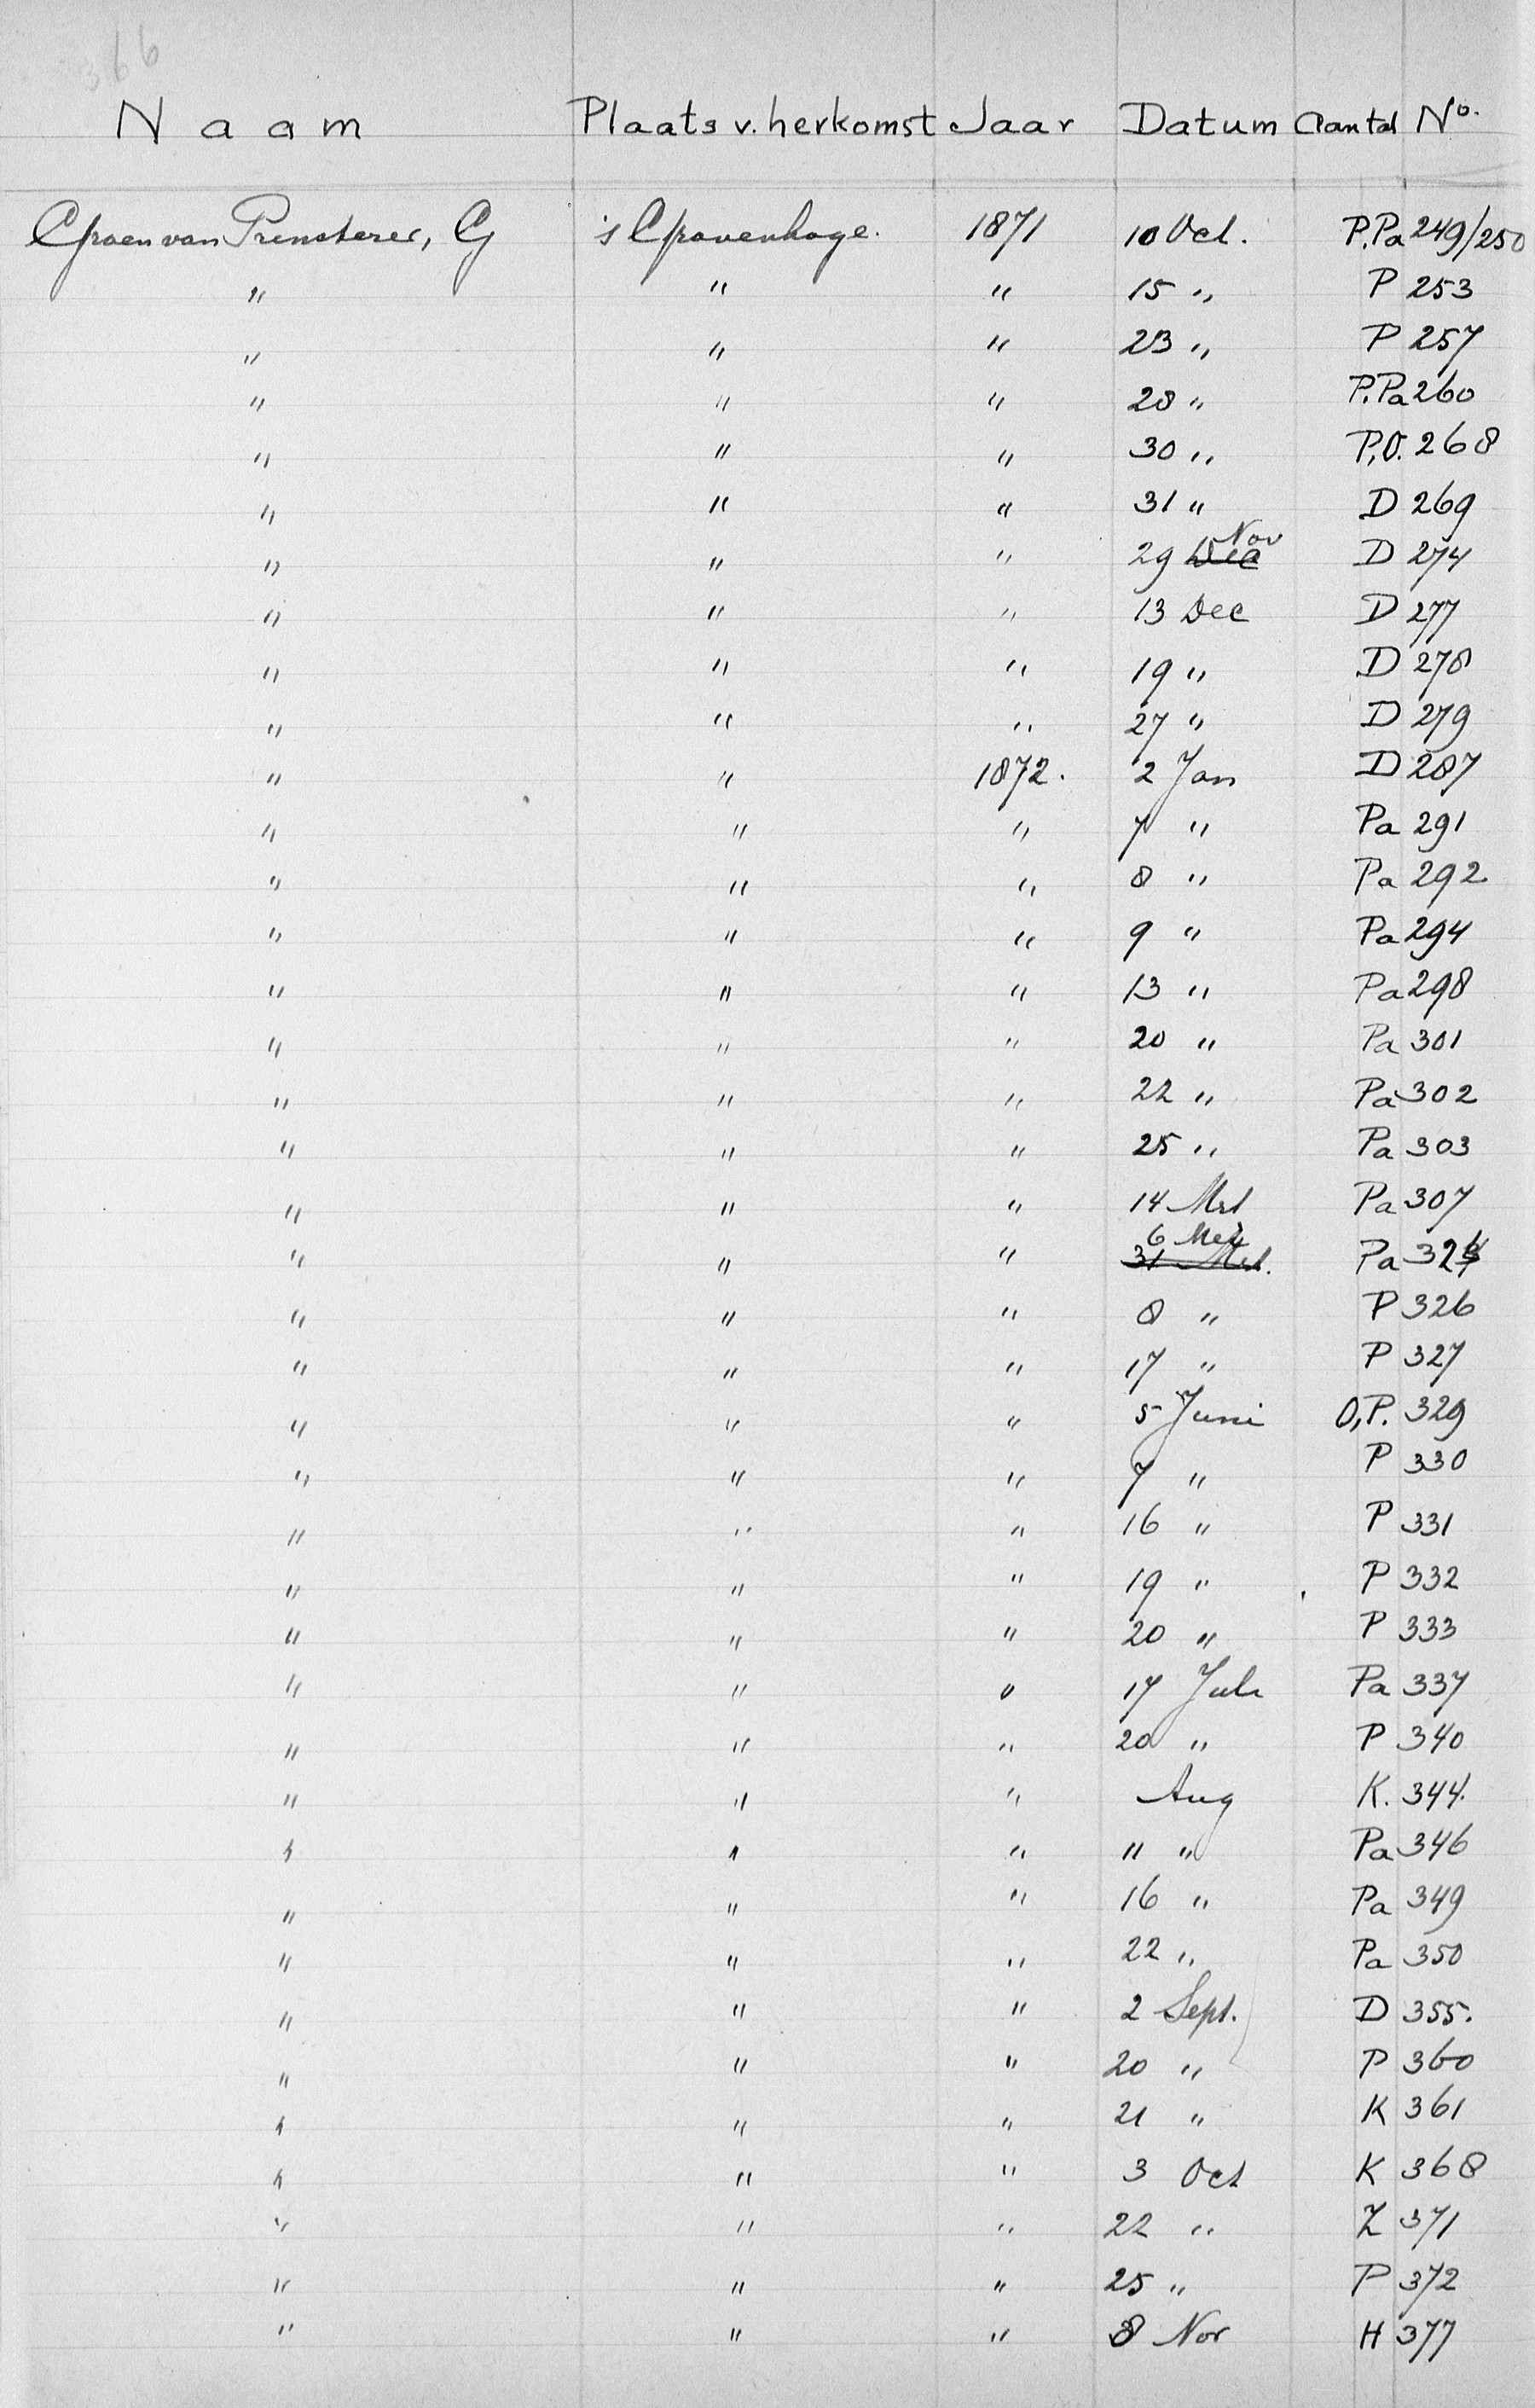 366
Naam Plaats v. herkomst Jaar Datum Aantal No.
Groen van Prinsterer, G 's Gravenhage. 1871 10 Oct. P.Pa 249/250
" " " 15 " P 253
" " " 23 " P 257
" " " 28 " P.Pa 260
" " " 30 " P,O. 268
" " " 31 " D 269
" " " 29 Dec Nov D 274
" " " 13 Dec D 277
" " " 19 " D 278
" " " 27 " D 279
" " 1872. 2 Jan D 287
" " " 7 " Pa 291
" " " 8 " Pa 292
" " " 9 " Pa 294
" " " 13 " Pa 298
" " " 20 " Pa 301
" " " 22 " Pa 302
" " " 25 " Pa 303
" " " 14 Mrt Pa 307
" " " 31 Mrt. 6 Mei Pa
" " " 8 " P 326
" " " 17 " P 327
" " " 5 Juni O,P. 329
" " " 7 " P 330
" " " 16 " P 331
" " " 19 " P 332
" " " 20 " P 333
" " " 17 Juli Pa 337
" " " 20 " P 340
" " " Aug K. 344.
" " " 11 " Pa 346
" " " 16 " Pa 349
" " " 22 " Pa 350
" " " 2 Sept. D 355.
" " " 20 " P 360
" " " 21 " K 361
" " " 3 Oct K 368
" " " 22 " Z 371
" " " 25 " P 372
" " " 8 Nov H 377